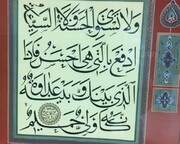 ولا تستوى الحسنة ولا السيئة
ادفع بالتى هى احسن فاذا
الذى بينك و بينه عداوة
كانه ولى حميم